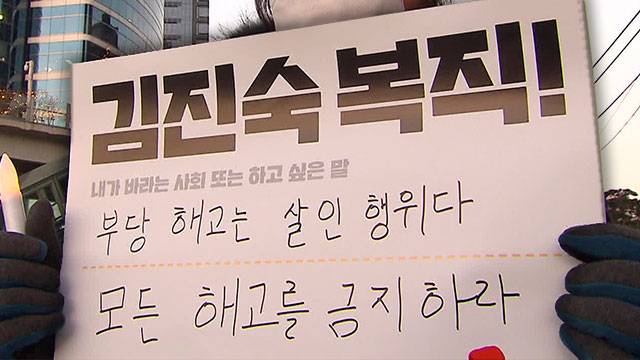 김진숙 복직!
내가 바라는 사회 또는 하고 싶은 말
부당 해고는 살인 행위다
모든 해고를 금지하라